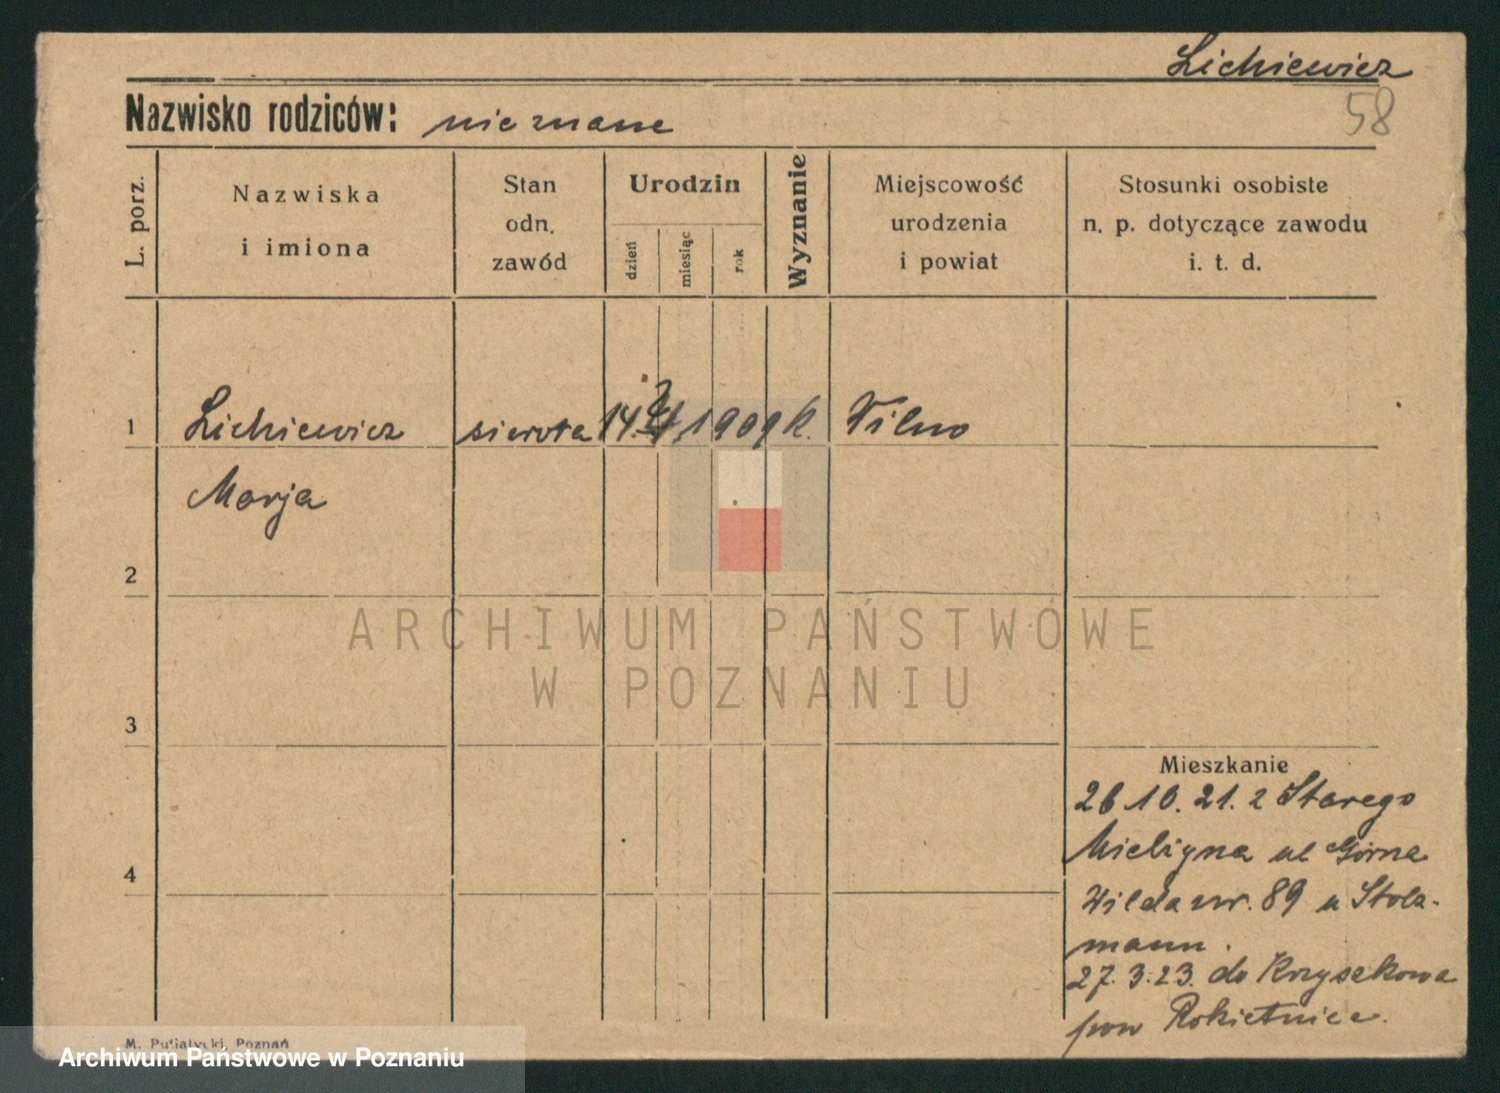 Lichiewicz
58
Nazwisko rodziców: nieznane
L. porz.
Nazwiska
i imiona
Stan
odn.
zawód
Urodzin
dzień
miesiąc
rok
Wyznanie
Miejscowość
urodzenia
i powiat
Stosunki osobiste
n. p. dotyczące zawodu
i. t. d.
1 Lichiewicz sierota 14. 1909 k. Wilno
Marja
2
ARCHIWUM PAŃSTWOWE
W POZNANIU
3
Mieszkanie
26 10. 21. z Starego
Mielzyna ul Górna
4
Wilda nr. 89 u Stolz-
mann.
27.3.23. do Krzyszkowa
pow Rokietnice.
M. Putiatycki, Poznań
Archiwum Państwowe w Poznaniu